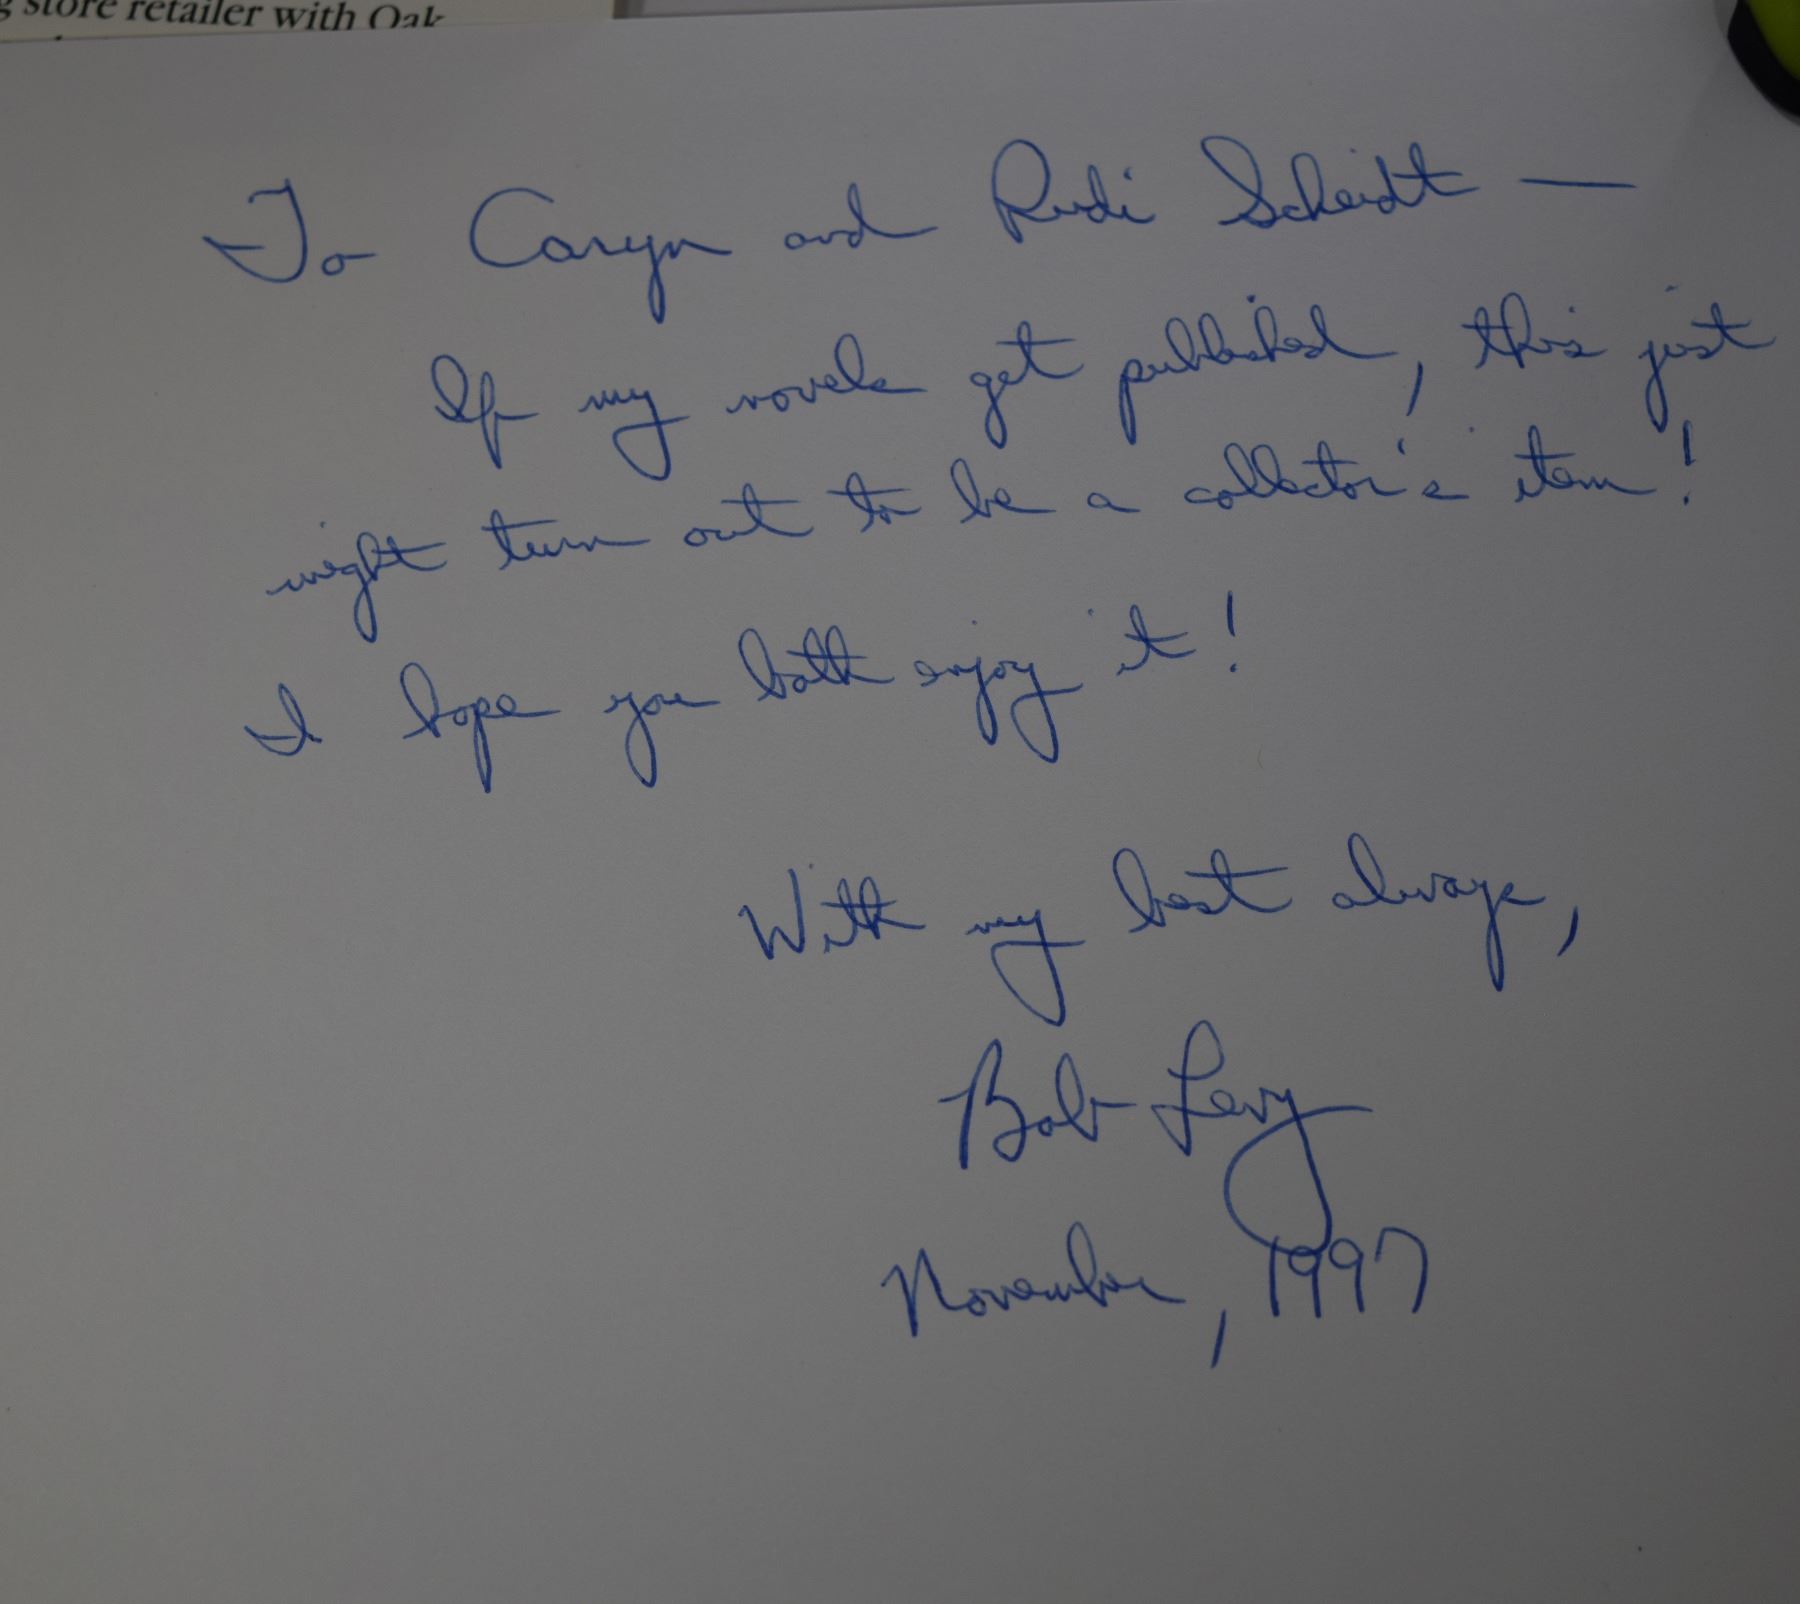 g store retailer with Oak
To Caryn and Rudi Scheidt —
If my novels get published, this just
might turn out to be a collector's item!
I hope you both enjoy it!
With my best always,
Bob Levy
November, 1997